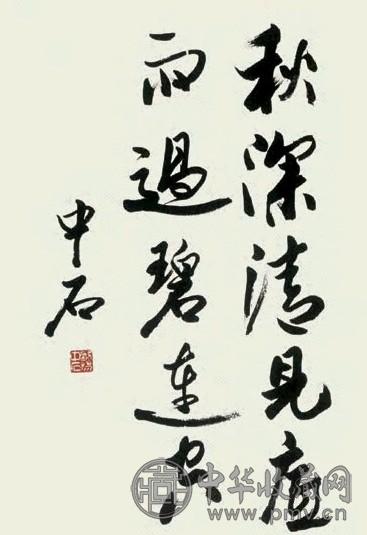 秋深清見底
雨過碧連空
中石
中华收藏网
www.pmv.cn